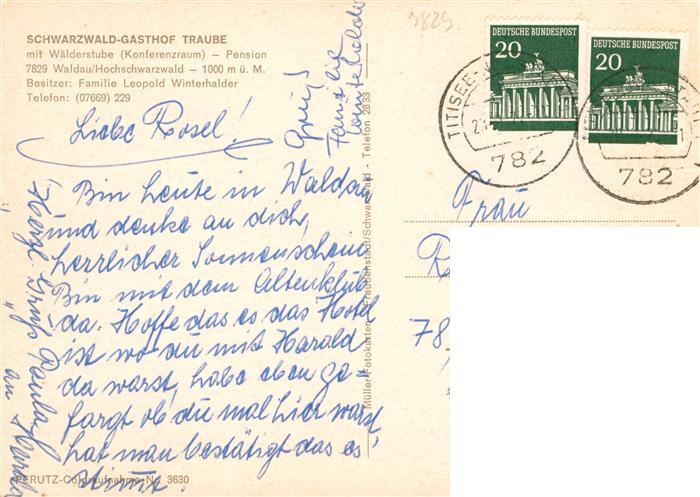 SCHWARZWALD-GASTHOF TRAUBE
mit Wälderstube (Konferenzraum) – Pension
7829 Waldau/Hochschwarzwald – 1000 m ü. M.
Besitzer: Familie Leopold Winterhalder
Telefon: (07669) 229
Liebe Rosel!
Bin heute in Waldau
und denke an dich,
herrlicher Sonnenschein
Bin mit dem Altenklub
da. Hoffe das es das Hotel
ist wo du mit Harald
da warst, habe eben ge-
fargt ob du mal hier warst,
hat man bestätigt das es
stimmt.
Herzl. Grüß Paula
" " an Harald
Gruß
Familie
PERUTZ-Coloraufnahme Nr. 3630
Müller Fotokarten Freudenstadt/Schwarzwald - Telefon 2833
DEUTSCHE BUNDESPOST
20
DEUTSCHE BUNDESPOST
20
TITISEE-
782
782
Frau
78